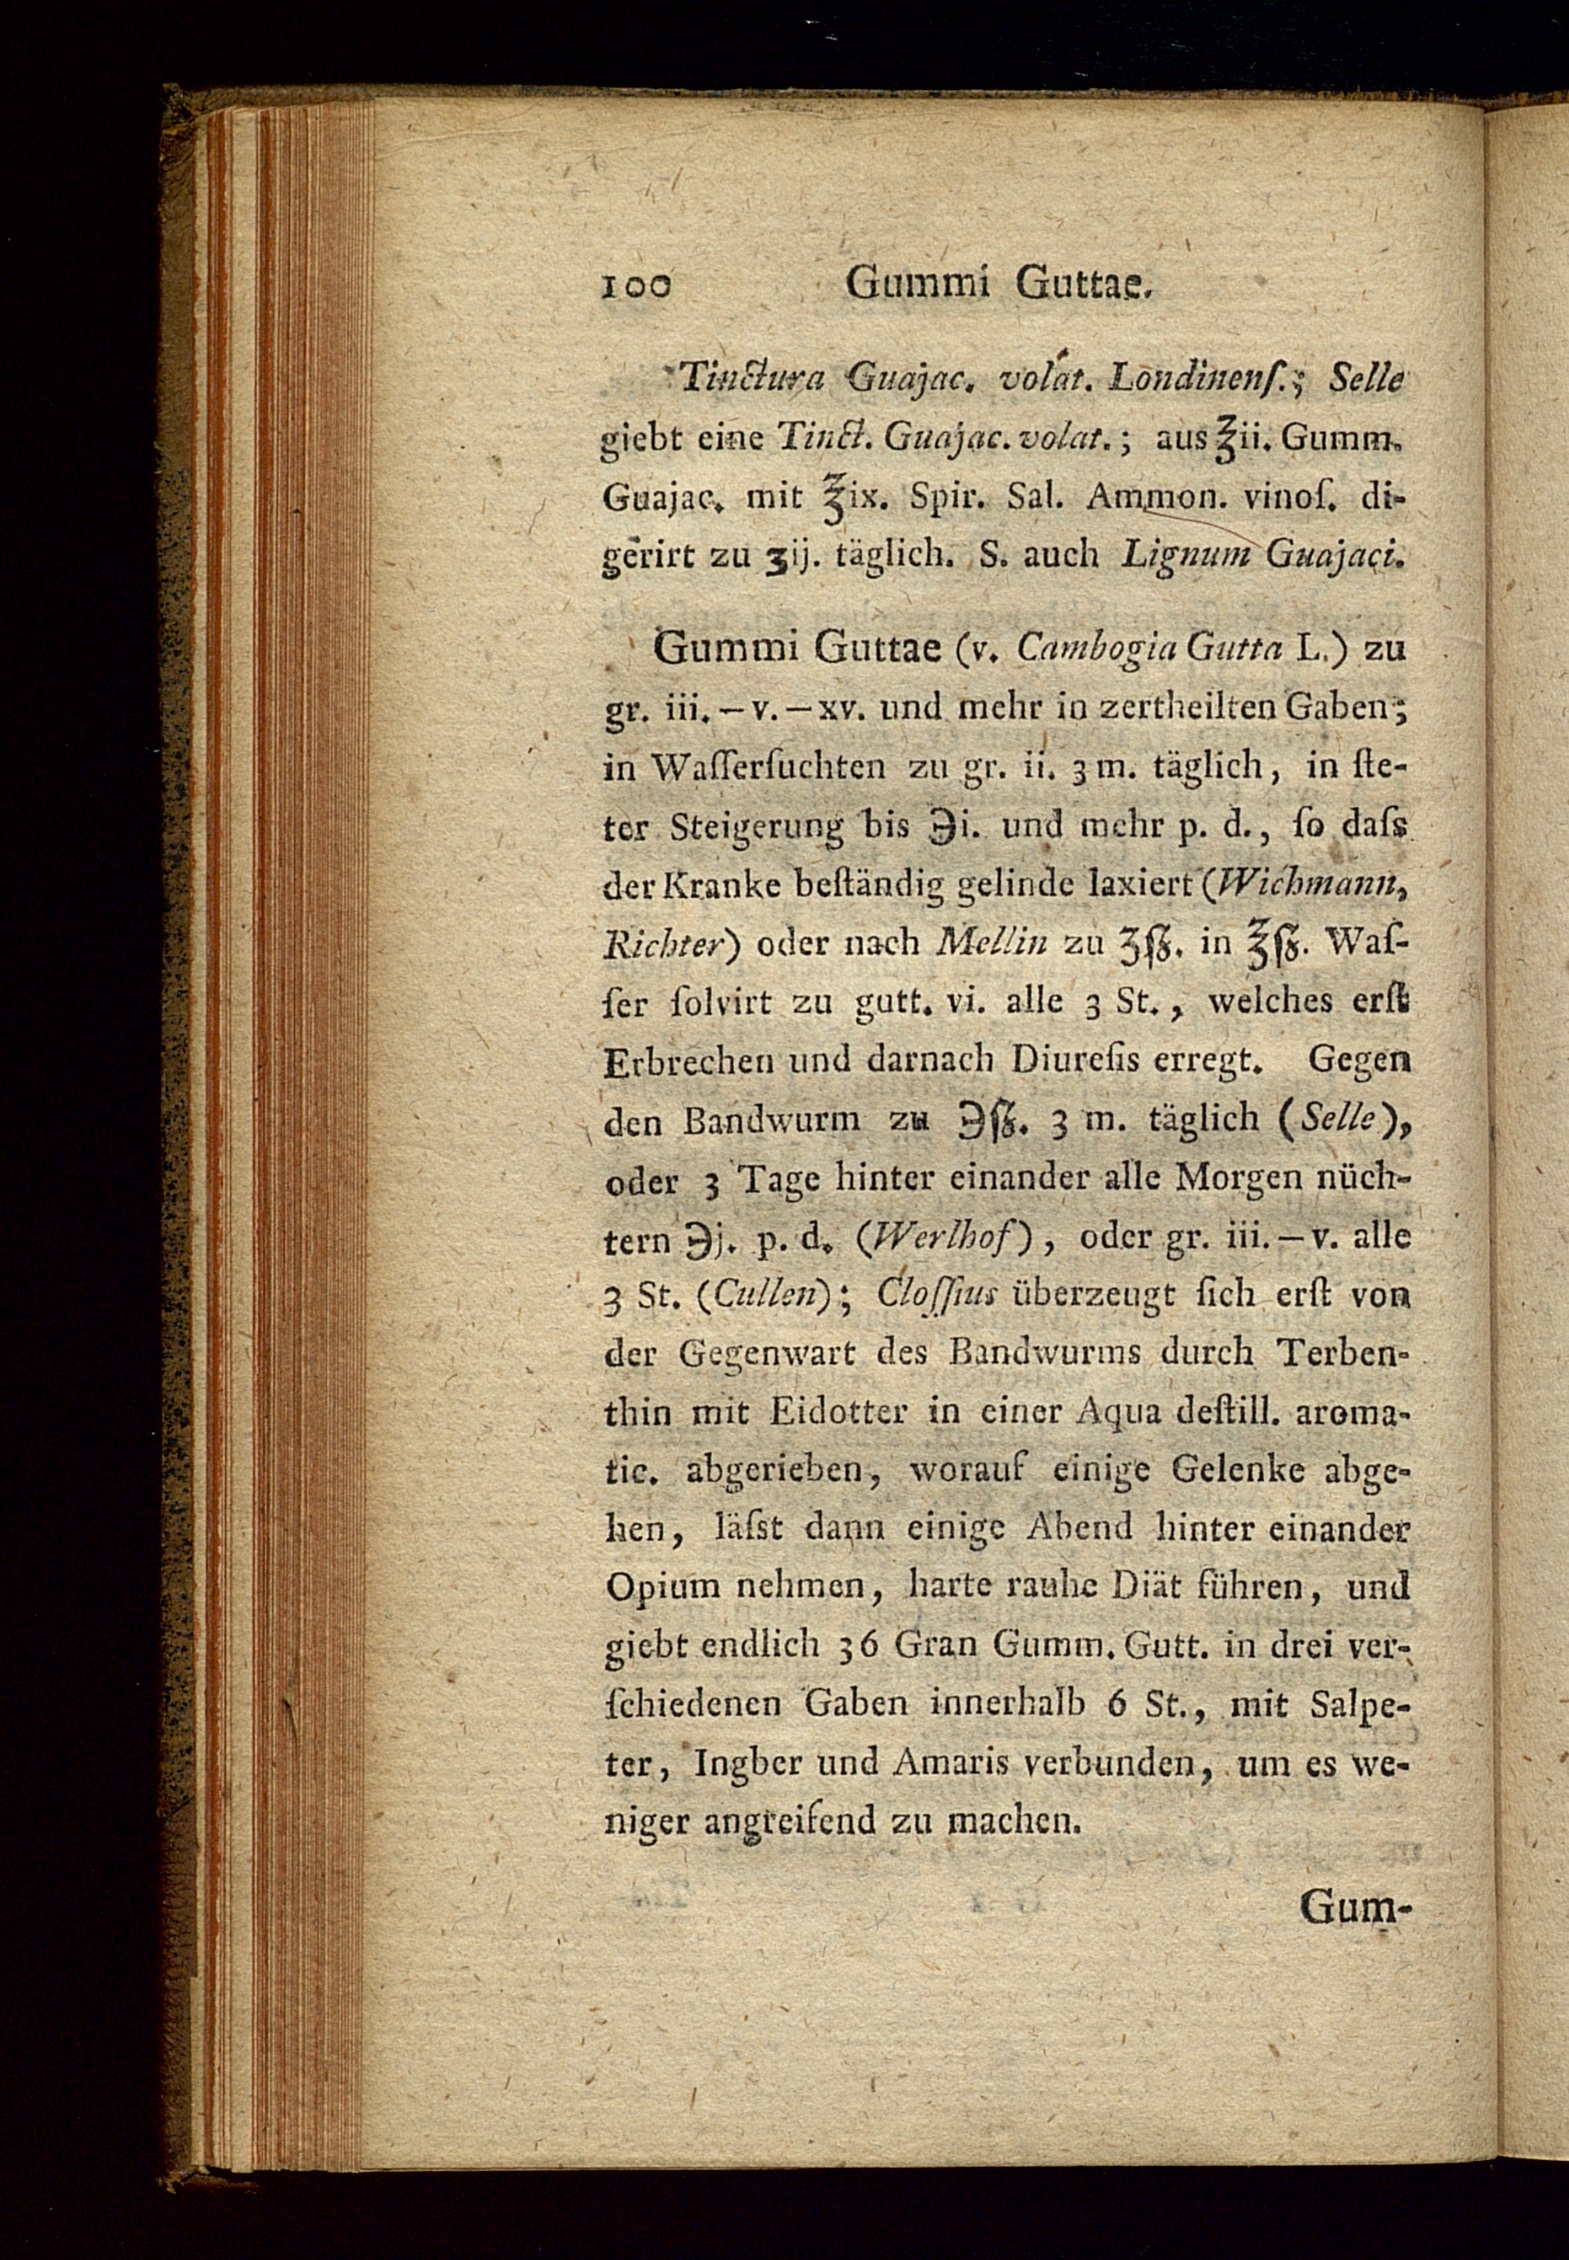 100 Gummi Guttae.
Tinctura Guajac. volat. Londinenſ.; Selle
giebt eine Tinct. Guajac. volat.; aus ℥ii. Gumm.
Guajac. mit ℥ix. Spir. Sal. Ammon. vinoſ. di-
gerirt zu ʒij. täglich. S. auch Lignum Guajaci.
Gummi Guttae (v. Cambogia Gutta L.) zu
gr. iii. — v. — xv. und mehr in zertheilten Gaben;
in Waſſerſuchten zu gr. ii. 3 m. täglich, in ſte-
ter Steigerung bis ℈i. und mehr p. d., ſo daſs
der Kranke beſtändig gelinde laxiert (Wichmann,
Richter) oder nach Mellin zu ʒſʒ. in ℥ſʒ. Waſ-
ſer ſolvirt zu gutt. vi. alle 3 St., welches erſt
Erbrechen und darnach Diureſis erregt. Gegen
den Bandwurm zu ℈ſʒ. 3 m. täglich (Selle),
oder 3 Tage hinter einander alle Morgen nüch-
tern ℈j. p. d. (Werlhof), oder gr. iii. — v. alle
3 St. (Cullen); Cloſſius überzeugt ſich erſt von
der Gegenwart des Bandwurms durch Terben-
thin mit Eidotter in einer Aqua deſtill. aroma-
tic. abgerieben, worauf einige Gelenke abge-
hen, läſst dann einige Abend hinter einander
Opium nehmen, harte rauhe Diät führen, und
giebt endlich 36 Gran Gumm. Gutt. in drei ver-
ſchiedenen Gaben innerhalb 6 St., mit Salpe-
ter, Ingber und Amaris verbunden, um es we-
niger angreifend zu machen.
Gum-